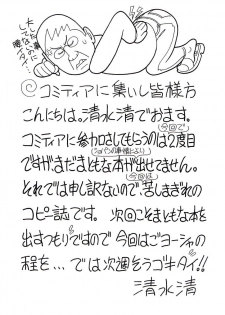 大した事
してないのに
腰がイタイ
コミティアに集いし皆様方
こんにちは。清水清でおます。
今回で
コミティアに参加させてもらうのは2度目
ですが、まだまともな本が出せてません。
今回は
それでは申し訳ないので苦しまぎれの
コピー誌です。次回こそまともな本を
出すつもりですので今回はごヨーシャの
程を…では次週そうゴキタイ!!
清水清